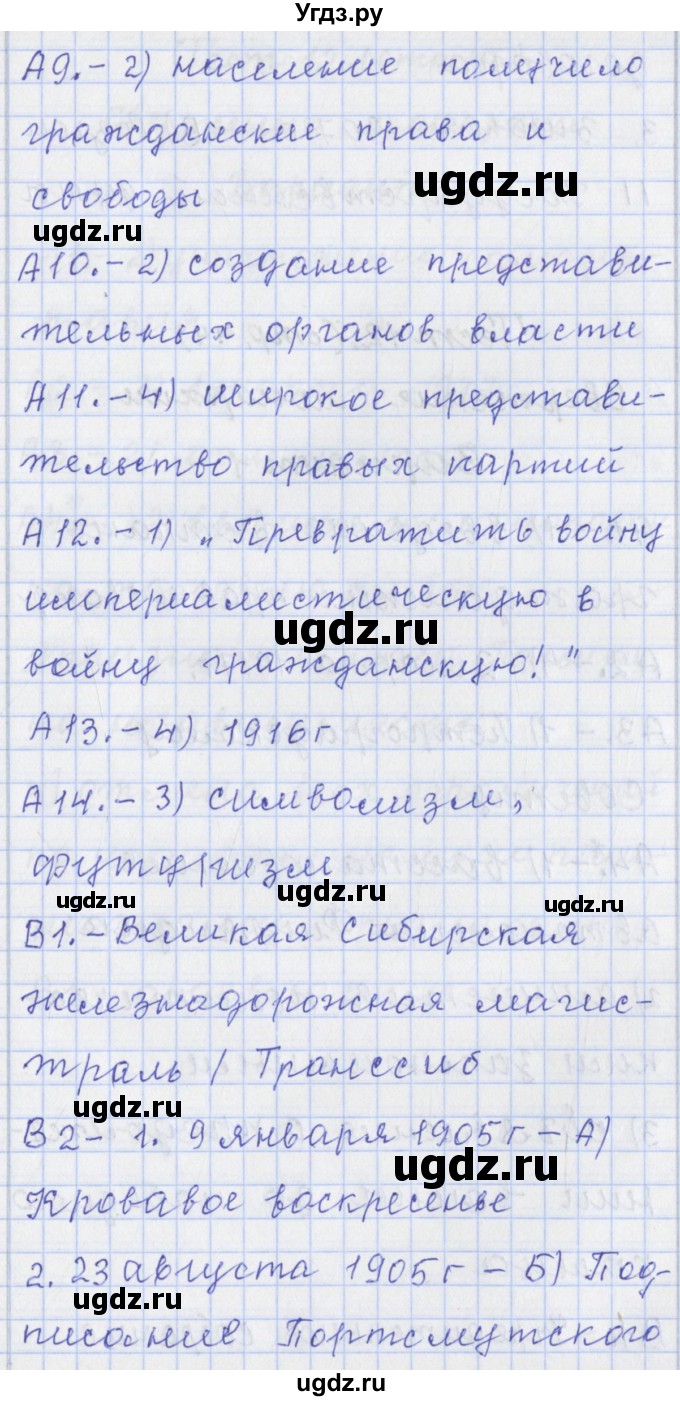 Угдз.ру
А9.- 2) население получило
гражданские права и
ugdz.ru
свободы
ugdz.ru
А10.- 2) создание представи-
тельных органов власти
А11.- 4) широкое представи-
тельство правых партий
А12.- 1) „Превратить войну
империалистическую в
ugdz.ru
войну гражданскую!"
А13.- 4) 1916г
А14.- 3) символизм,
футуризм
ugdz.ru
ugdz.ru
ugdz.ru
В1.- Великая Сибирская
железнадорожная магис-
траль / Транссиб
ugdz.ru
В2- 1. 9 января 1905г - А)
ugdz.ru
Кровавое воскресенье
2. 23 августа 1905г - Б) Под-
ugdz.ru
писание Портсмутского
ugdz.ru